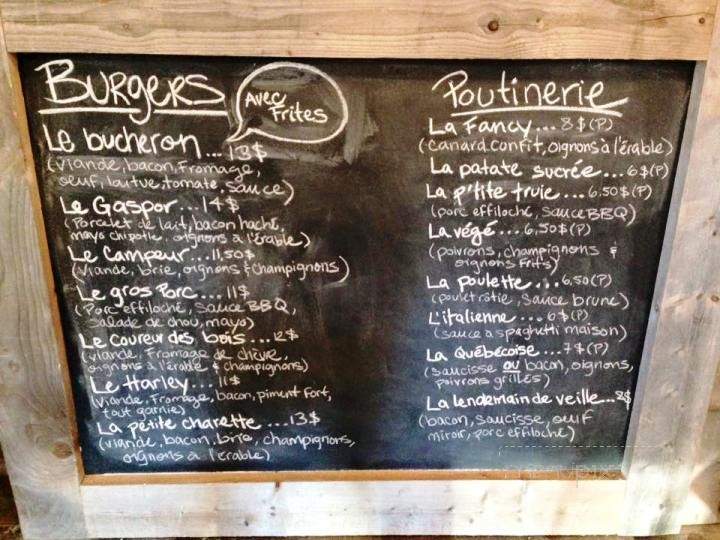 Burgers
Avec
Frites
Le bucheron... 13$
(viande, bacon, fromage,
oeuf, laitue, tomate, sauce)
Le Gaspor... 14$
(Porcelet de lait, bacon haché,
mayo chipotle, oignons à l'érable)
Le Campeur... 11,50$
(viande, brie, oignons & champignons)
Le gros Porc... 11$
(Porc effiloché, Sauce BBQ,
Salade de chou, mayo)
Le coureur des bois... 12$
(viande, fromage de chèvre,
oignons à l'érable & champignons)
Le Harley... 11$
(viande, fromage, bacon, piment fort,
tout garnie)
La petite charette ....13$
(viande, bacon, brie, champignons,
oignons à l'érable)
Poutinerie
La Fancy... 8$(P)
(canard confit, oignons à l'érable)
La patate sucrée... 6$(P)
La p'tite truie... 6,50$(P)
(porc effiloché, sauce BBQ)
La végé.... 6,50$(P)
(poivrons, champignons &
oignons frits)
La poulette... 6,50(P)
(poulet rôtie, sauce brune)
L'italienne.... 6$(P)
(sauce à spaghetti maison)
La Québécoise... 7$(P)
(saucisse ou bacon, oignons,
poivrons grillés)
La lendemain de veille...8$
(bacon, saucisse, oeuf
miroir, porc effiloché)